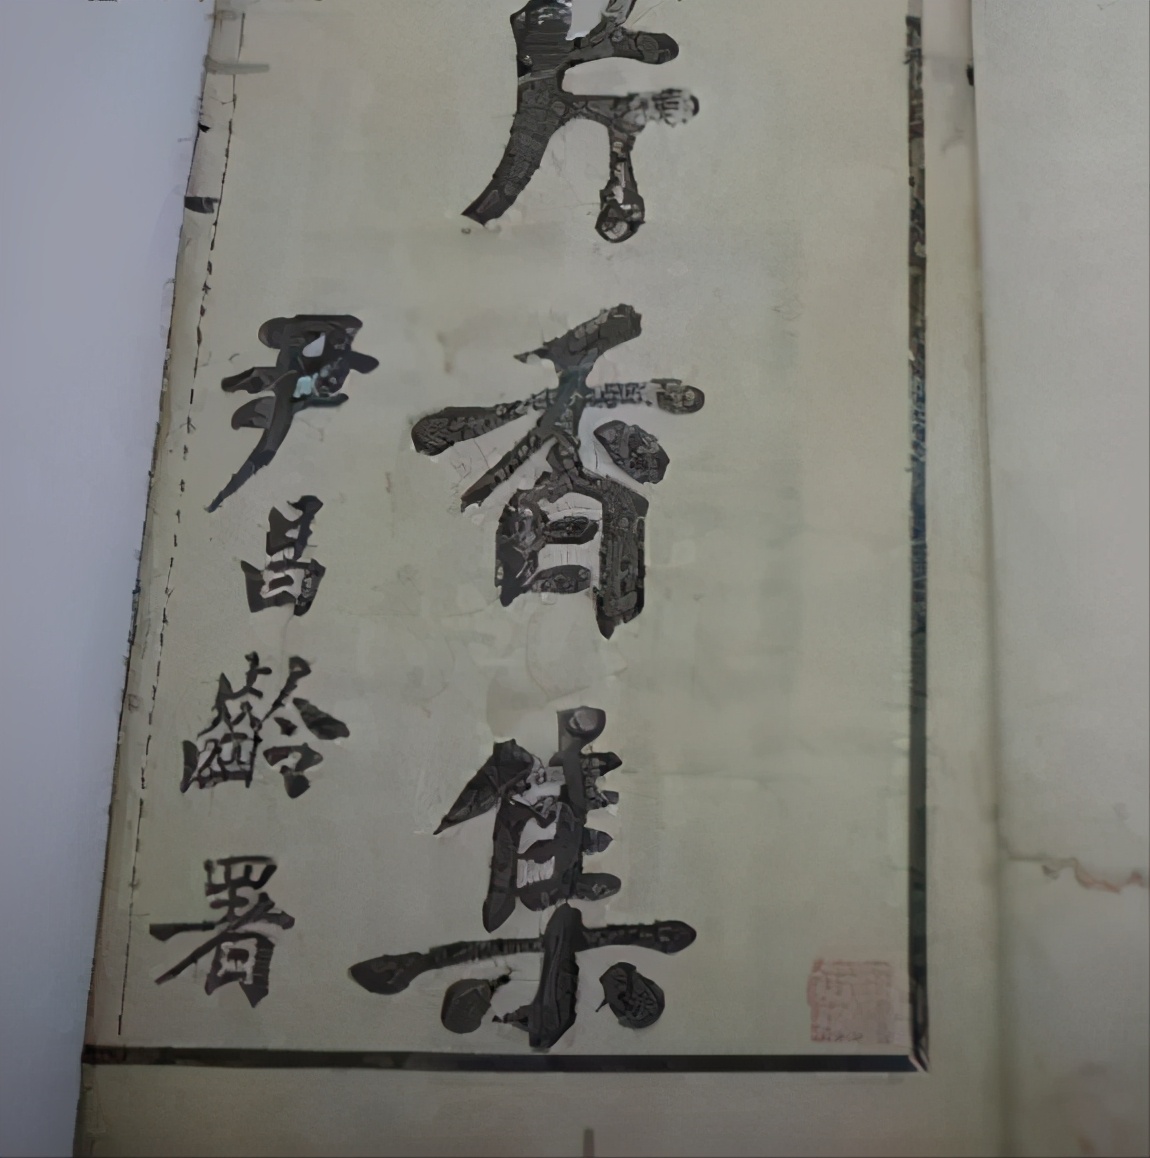 片香集
尹昌齡署